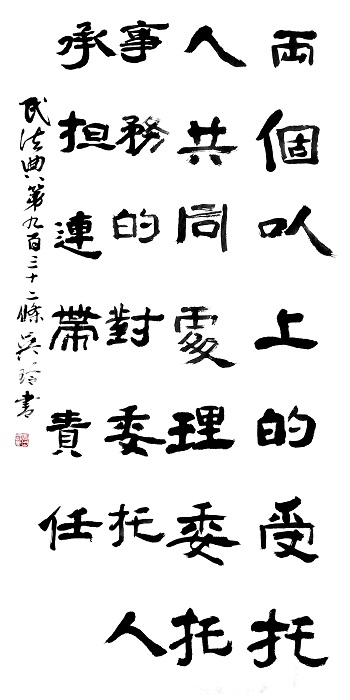 両個以上的受托
人共同處理委托
事務的對委托人
承担連帶責任
民法典第九百三十二條吳玲書